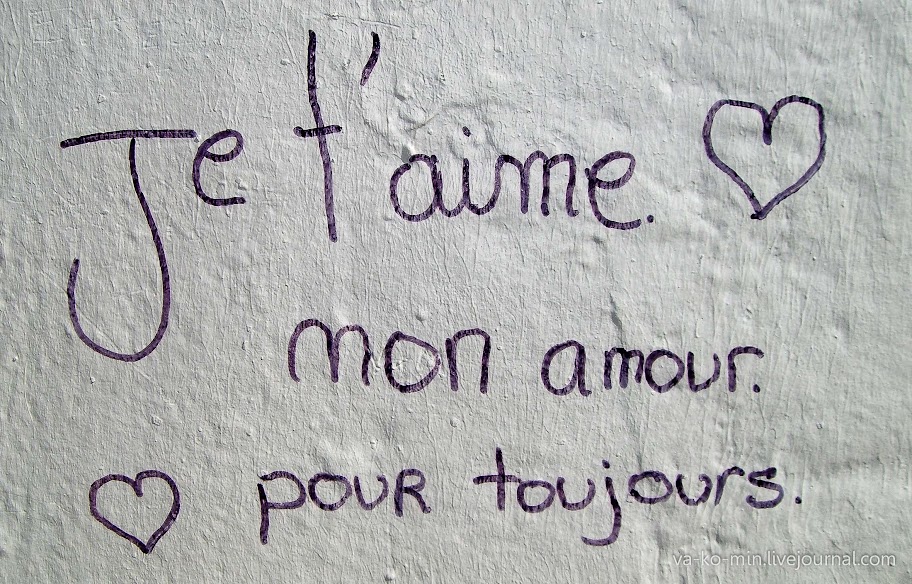 Je t'aime.
mon amour.
pour toujours.
va-ko-min.livejournal.com